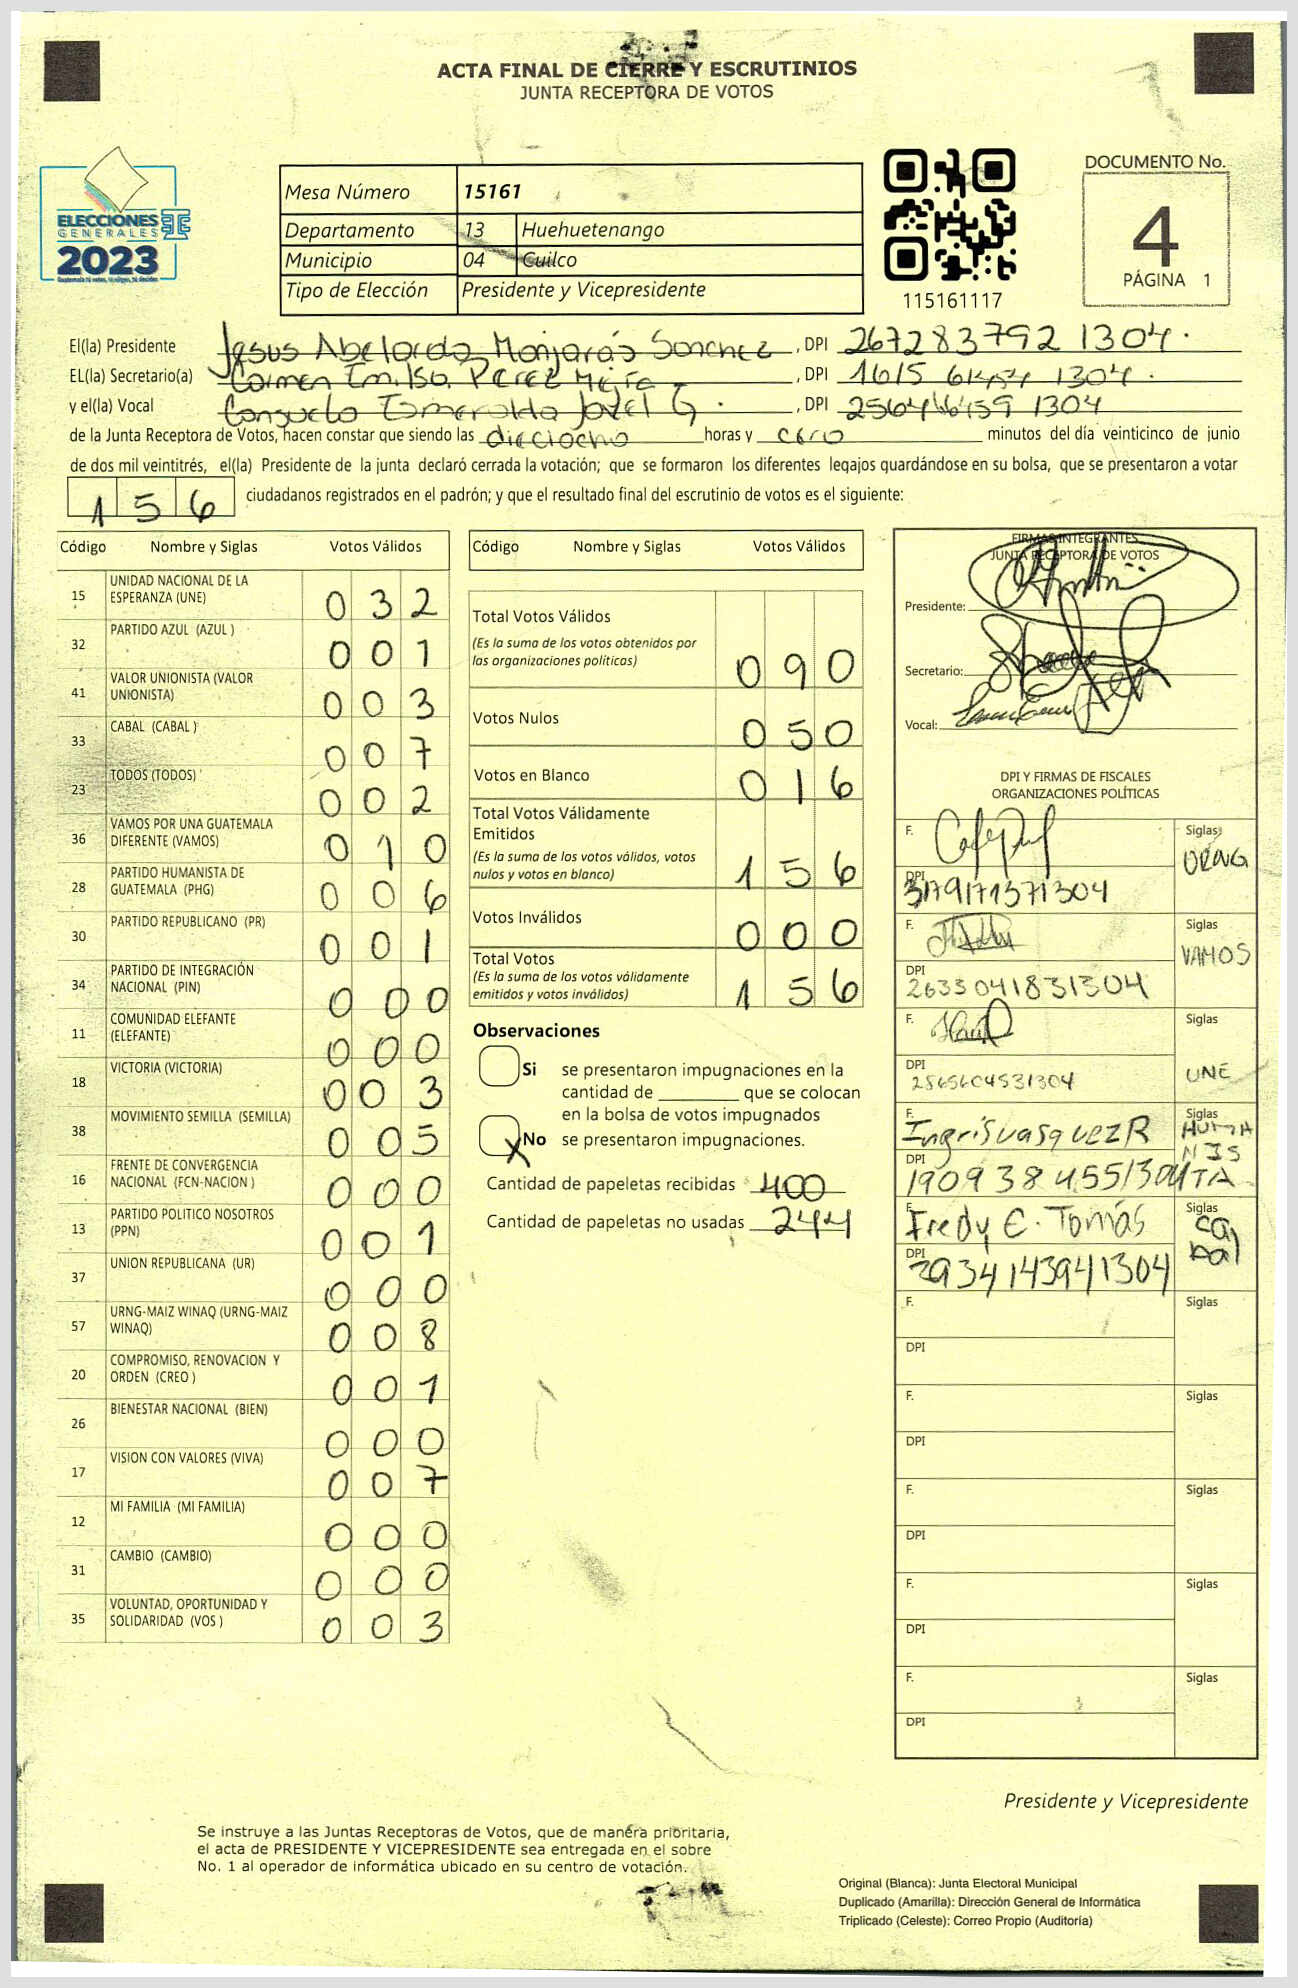 ACTA FINAL DE CIERRE Y ESCRUTINIOS
JUNTA RECEPTORA DE VOTOS
ELECCIONES
GENERALES
2023
Mesa Número 15161
Departamento 13 Huehuetenango
Municipio 04 Cuilco
Tipo de Elección Presidente y Vicepresidente
115161117
DOCUMENTO No.
4
PÁGINA 1
El(la) Presidente Jesus Abelardo Monjarás Sanchez, DPI 2672837921304.
EL(la) Secretario(a) Carmen Perez Mejía, DPI 1304.
y el(la) Vocal Consuelo Esmeralda G., DPI 1304
de la Junta Receptora de Votos, hacen constar que siendo las dieciocho horas y cero minutos del día veinticinco de junio
de dos mil veintitrés, el(la) Presidente de la junta declaró cerrada la votación; que se formaron los diferentes legajos guardándose en su bolsa, que se presentaron a votar
156 ciudadanos registrados en el padrón; y que el resultado final del escrutinio de votos es el siguiente:
Código Nombre y Siglas Votos Válidos
15 UNIDAD NACIONAL DE LA ESPERANZA (UNE) 032
32 PARTIDO AZUL (AZUL ) 001
41 VALOR UNIONISTA (VALOR UNIONISTA) 003
33 CABAL (CABAL ) 007
23 TODOS (TODOS) 002
36 VAMOS POR UNA GUATEMALA DIFERENTE (VAMOS) 010
28 PARTIDO HUMANISTA DE GUATEMALA (PHG) 006
30 PARTIDO REPUBLICANO (PR) 001
34 PARTIDO DE INTEGRACIÓN NACIONAL (PIN) 000
11 COMUNIDAD ELEFANTE (ELEFANTE) 000
18 VICTORIA (VICTORIA) 003
38 MOVIMIENTO SEMILLA (SEMILLA) 005
16 FRENTE DE CONVERGENCIA NACIONAL (FCN-NACION ) 000
13 PARTIDO POLITICO NOSOTROS (PPN) 001
37 UNION REPUBLICANA (UR) 000
57 URNG-MAIZ WINAQ (URNG-MAIZ WINAQ) 008
20 COMPROMISO, RENOVACION Y ORDEN (CREO ) 001
26 BIENESTAR NACIONAL (BIEN) 000
17 VISION CON VALORES (VIVA) 007
12 MI FAMILIA (MI FAMILIA) 000
31 CAMBIO (CAMBIO) 000
35 VOLUNTAD, OPORTUNIDAD Y SOLIDARIDAD (VOS ) 003
Código Nombre y Siglas Votos Válidos
Total Votos Válidos
(Es la suma de los votos obtenidos por
las organizaciones políticas) 090
Votos Nulos 050
Votos en Blanco 016
Total Votos Válidamente
Emitidos
(Es la suma de los votos válidos, votos
nulos y votos en blanco) 156
Votos Inválidos 000
Total Votos
(Es la suma de los votos válidamente
emitidos y votos inválidos) 156
Observaciones
Si se presentaron impugnaciones en la
cantidad de ________ que se colocan
en la bolsa de votos impugnados
X No se presentaron impugnaciones.
Cantidad de papeletas recibidas 400
Cantidad de papeletas no usadas 244
FIRMAS INTEGRANTES
JUNTA RECEPTORA DE VOTOS
Presidente:
Secretario:
Vocal:
DPI Y FIRMAS DE FISCALES
ORGANIZACIONES POLÍTICAS
F. Siglas
URNG
DPI 3179171371304
F. Siglas
VAMOS
DPI 2633041831304
F. Siglas
UNE
DPI
F. Ingris vasquez R Siglas
HUMA
NIS
TA
DPI 1909384551304
F. Fredy E. Tomás Siglas
cabal
DPI 2934143941304
F. Siglas
DPI
F. Siglas
DPI
F. Siglas
DPI
F. Siglas
DPI
F. Siglas
DPI
Presidente y Vicepresidente
Se instruye a las Juntas Receptoras de Votos, que de manera prioritaria,
el acta de PRESIDENTE Y VICEPRESIDENTE sea entregada en el sobre
No. 1 al operador de informática ubicado en su centro de votación.
Original (Blanca): Junta Electoral Municipal
Duplicado (Amarilla): Dirección General de Informática
Triplicado (Celeste): Correo Propio (Auditoría)